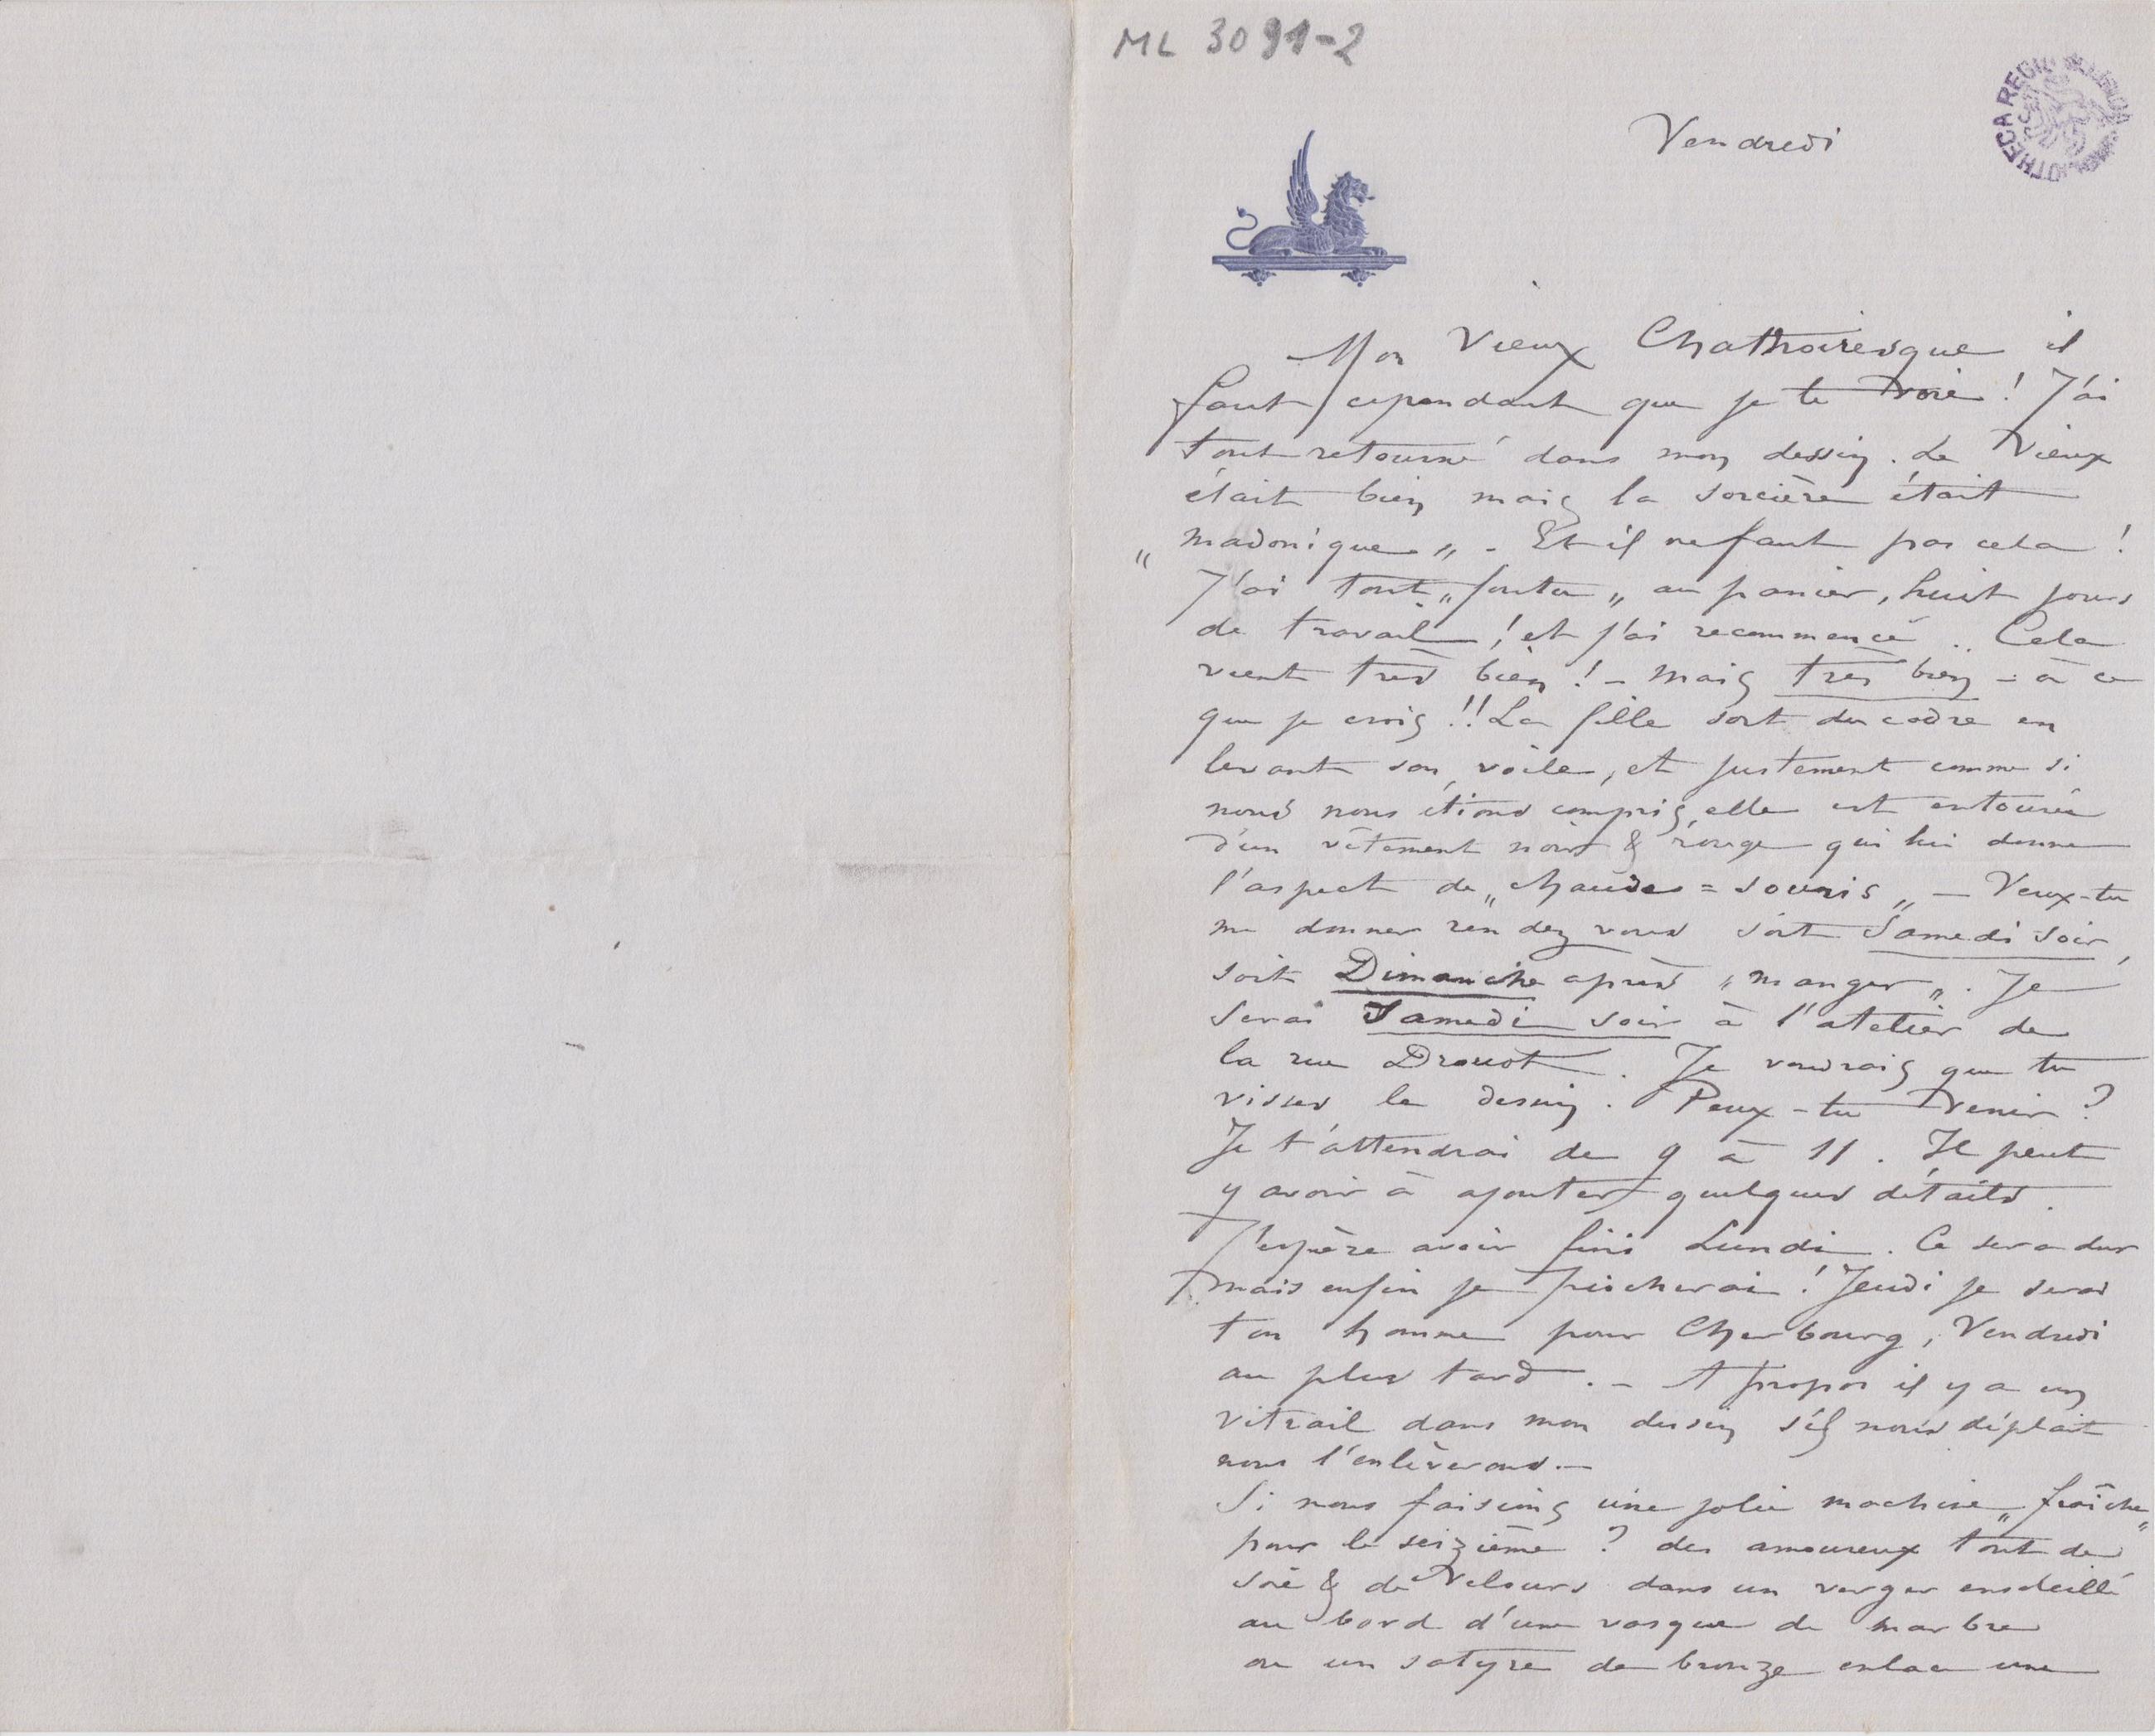 ML 3091-2
Vendredi
Mon Vieux Chathoiresque il
faut cependant que je te voie ! J'ai
tout retourné dans mon dessin. Le Vieux
était bien mais la sorcière était
„ madonique „ - Et il ne faut pas cela !
J'ai tout „ foutu „ au panier, huit jours
de travail ! et j'ai recommencé.. Cela
vient très bien ! - mais très bien - à ce
que je crois !! La fille sort du cadre en
levant son voile, et justement comme si
nous nous étions compris, elle est entourée
d'un vêtement noir & rouge qui lui donne
l'aspect de „ chauve = souris „ — Veux-tu
me donner rendez vous soit Samedi soir,
soit Dimanche après „ manger „. Je
serai Samedi soir à l'atelier de
la rue Drouot. Je voudrais que tu
visses le dessin. Peux-tu venir ?
Je t'attendrai de 9 à 11. Il peut
y avoir à ajouter quelques détails.
J'espère avoir fini Lundi. Ce sera dur
mais enfin je piocherai ! Jeudi je serai
ton homme pour Cherbourg, Vendredi
au plus tard. - A propos il y a un
vitrail dans mon dessin s'il nous déplait
nous l'enlèverons. —
Si nous faisions une jolie machine „ fraîche „
pour le seizième ? des amoureux tout de
soie & de Velours dans un verger ensoleillé
au bord d'une vasque de marbre
ou un satyre de bronze enlace une